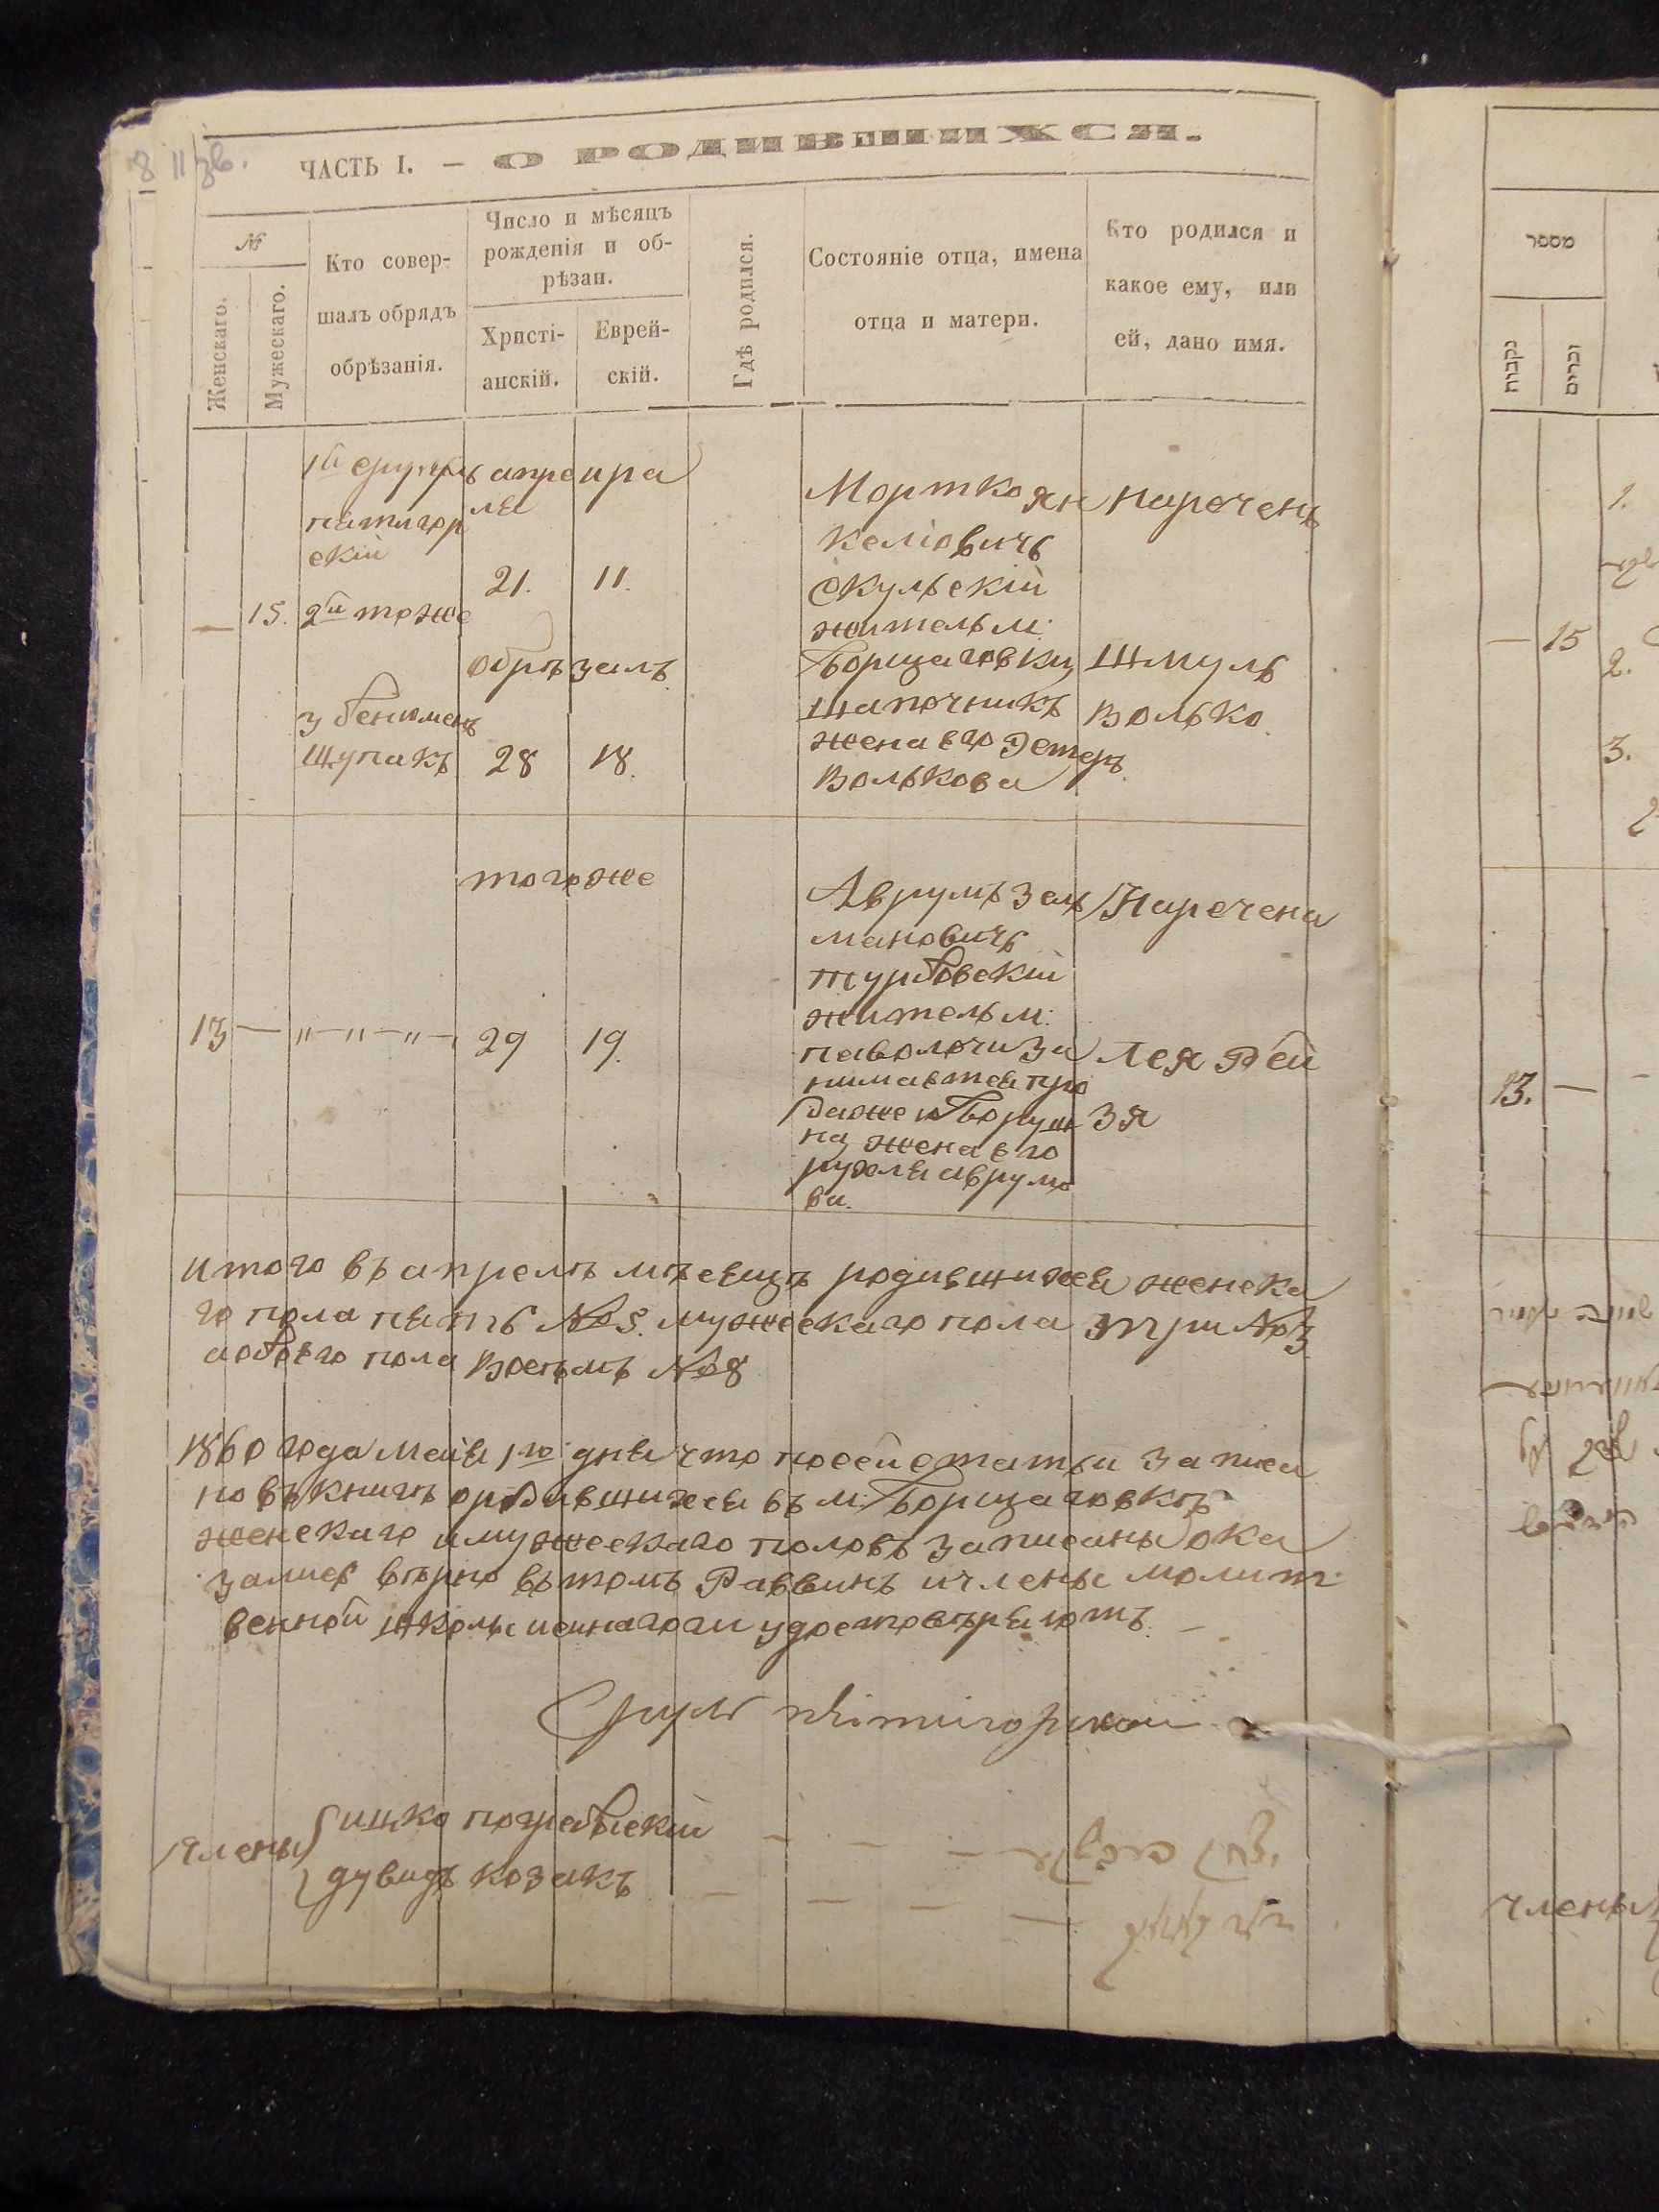 8 II зв.
ЧАСТЬ I. — О РОДИВШИХСЯ.
№
Женскаго.
Мужескаго.
Кто совер-
шалъ обрядъ
обрѣзанія.
Число и мѣсяцъ
рожденія и об-
рѣзан.
Христі-
анскій.
Еврей-
скій.
Гдѣ родился.
Состояніе отца, имена
отца и матери.
Кто родился и
какое ему, или
ей, дано имя.
— 15.
1й Сруль
пятигор
скій
2й тоже
3 Бенюменъ
Щупакъ
апре ира
ля
21. 11.
обрѣзалъ
28 18.
Мортко Ян
келіовичъ
Скульскій
житель м:
Борщаговки,
шапочникъ
жена его Эстеръ
Волькова
Нареченъ
Шмуль
Волько
13 — „—„—„—
тогоже
29 19.
Аврумъ Зель
мановичъ
турбовскій
житель м:
паволочи за
нимается про
даже Борущ
на, жена его
рухля аврумо
ва.
Наречена
Лея Рей
зя
итого въ апрелѣ мѣсяцѣ родившихся женска
го пола пять №5. мужескаго пола три №3
а обоего пола восемь №8
1860 года майя 1го дня что по сей статьи записа
но въ книгѣ о родившихся въ м: Борщаговкѣ
женскаго и мужескаго половъ записаны ока
зались вѣрно въ томъ Раввинъ и члены молит
венной школы синагоги удостовѣряютъ.
Сруль пятигорский
члены
ицко погребискій — — —
дувидъ козакъ — — — —
מספר
נקבות
זכרים
— 15
1.
2.
3.
13. —
члены